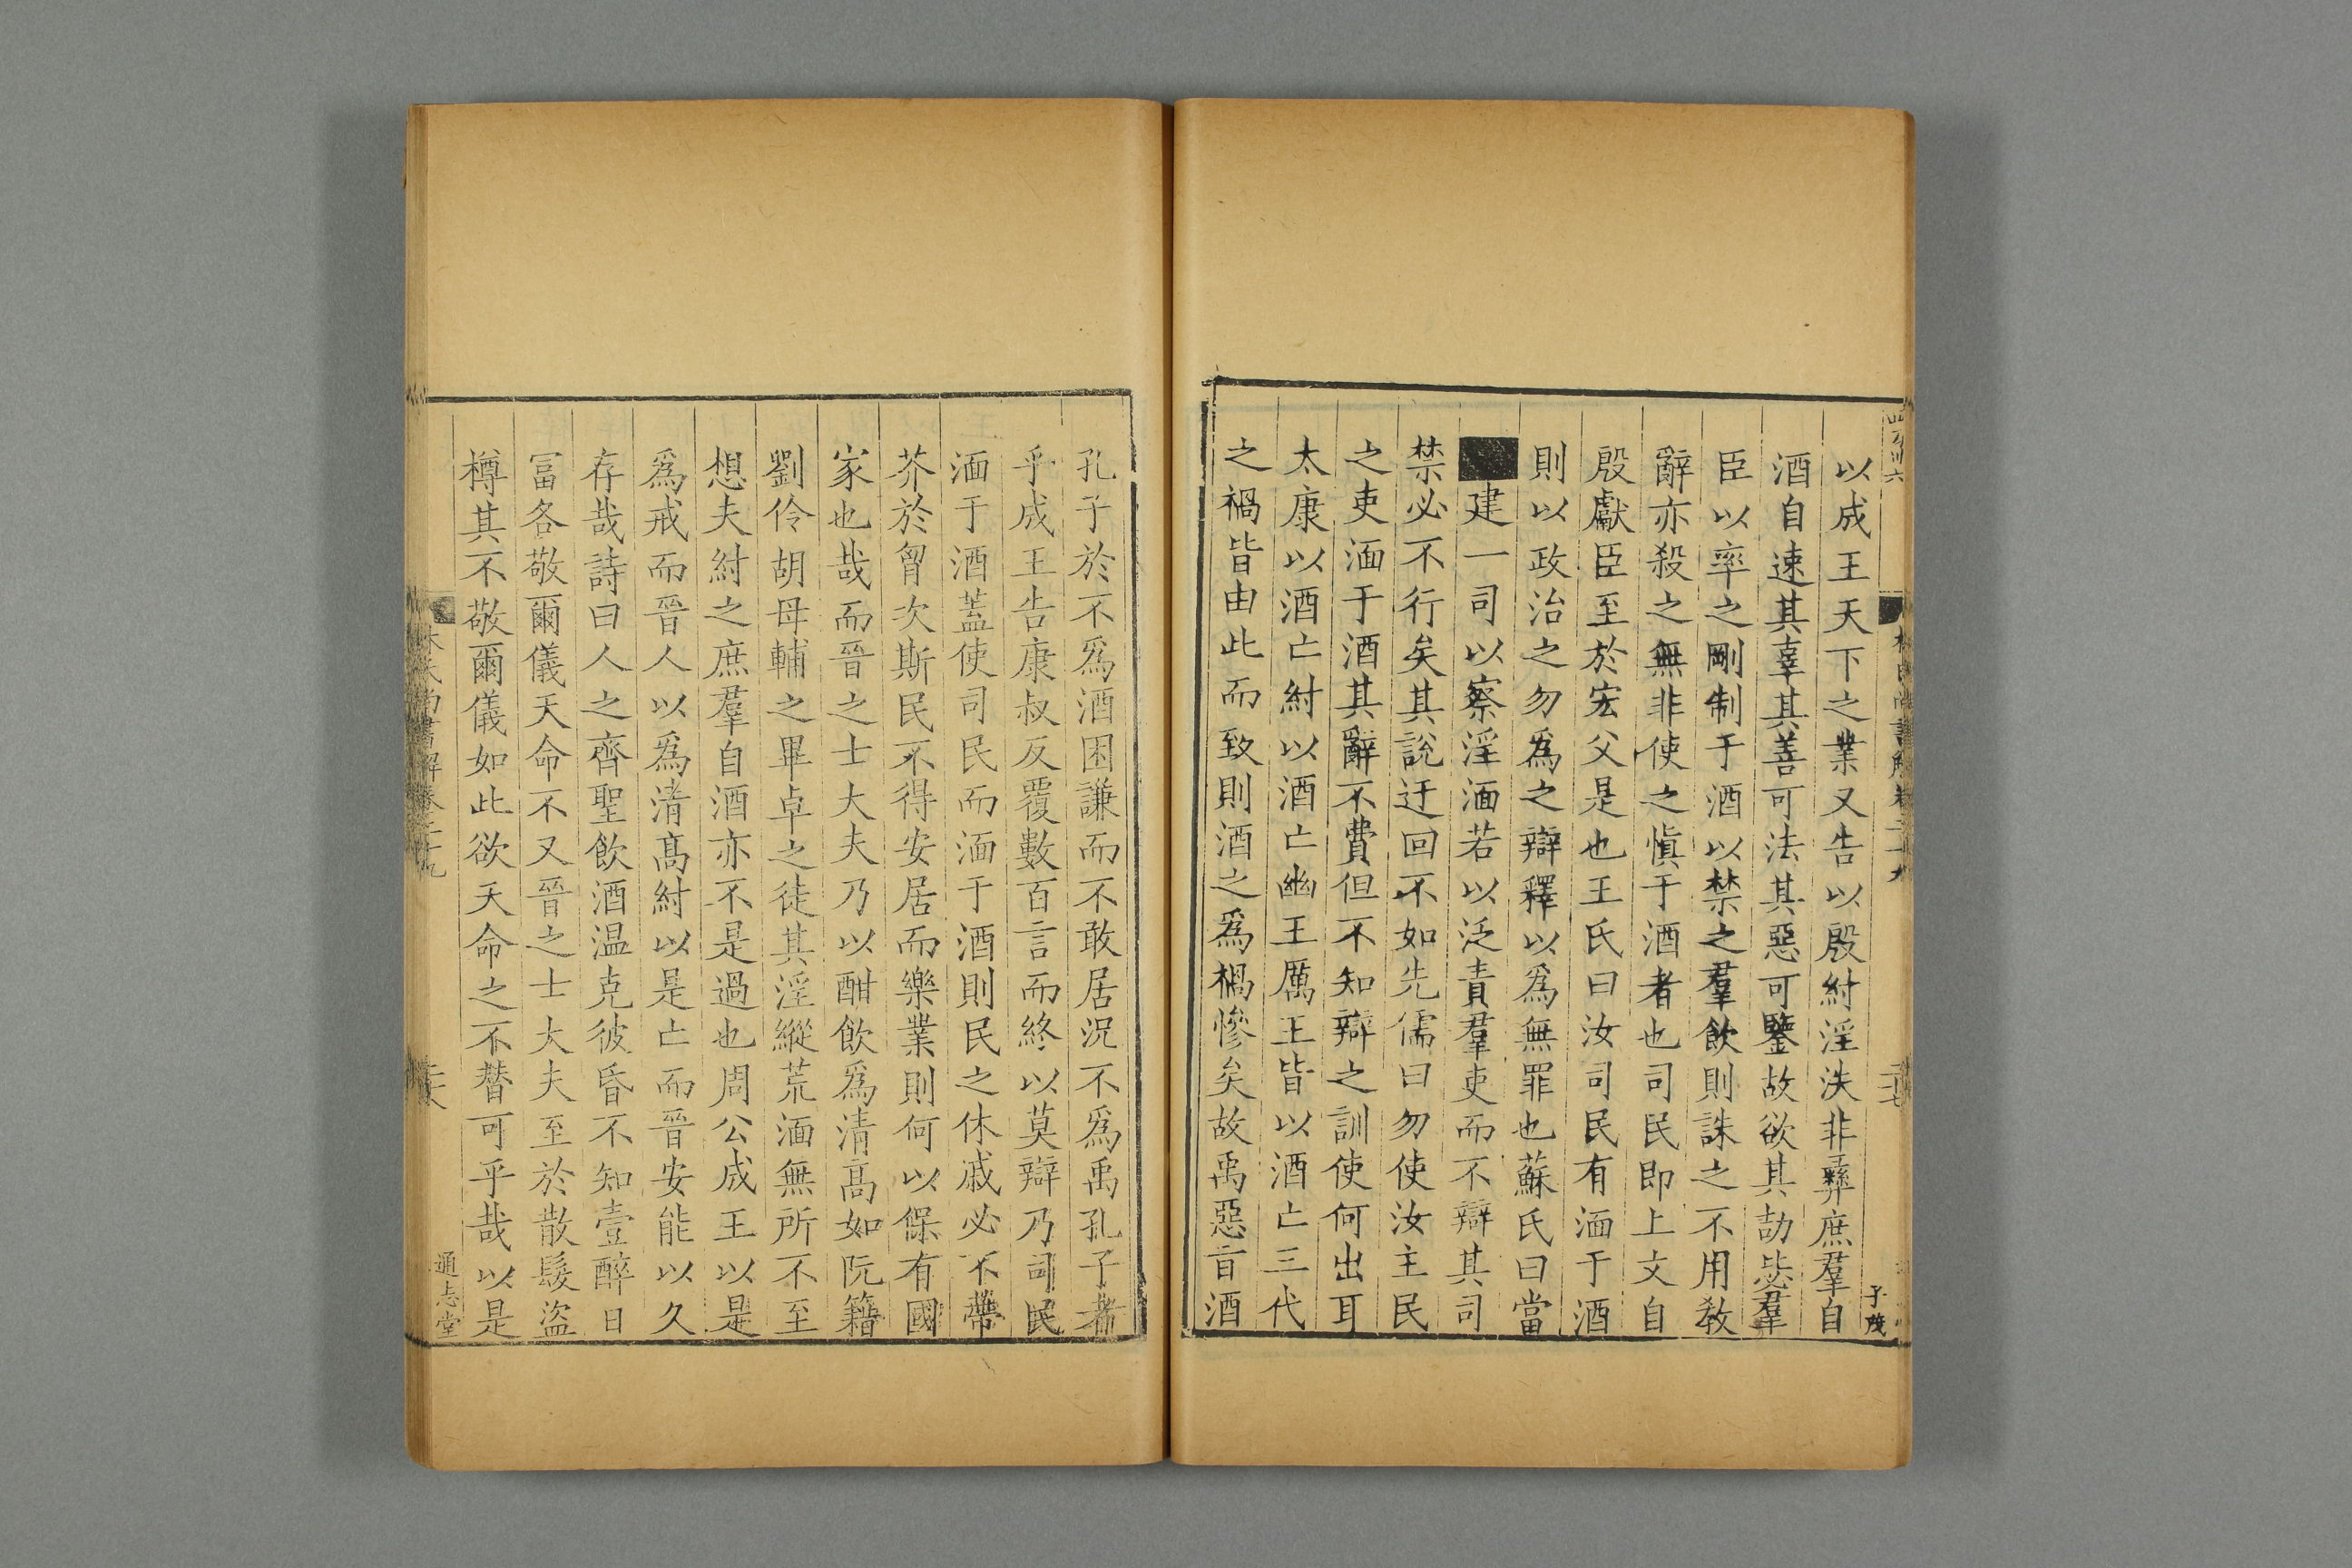 以成王天下之業又告以殷紂淫泆非彝庶羣自
酒自速其辜其善可法其惡可鑒故欲其劼毖羣
臣以率之剛制于酒以禁之羣飲則誅之不用敎
辭亦殺之無非使之愼于酒者也司民即上文自
殷獻臣至於宏父是也王氏曰汝司民有湎于酒
則以政治之勿爲之辯釋以爲無罪也蘇氏曰當
建一司以察淫湎若以泛責羣吏而不辯其司
禁必不行矣其說迂回不如先儒曰勿使汝主民
之吏湎于酒其辭不費但不知辯之訓使何出耳
太康以酒亡紂以酒亡幽王厲王皆以酒亡三代
之禍皆由此而致則酒之爲禍慘矣故禹惡旨酒
子茂
孔子於不爲酒困謙而不敢居況不爲禹孔子者
乎成王告康叔反覆數百言而終以莫辯乃司民
湎于酒蓋使司民而湎于酒則民之休戚必不蔕
芥於胷次斯民不得安居而樂業則何以保有國
家也哉而晉之士大夫乃以酣飲爲清高如阮籍
劉伶胡母輔之畢卓之徒其淫縱荒湎無所不至
想夫紂之庶羣自酒亦不是過也周公成王以是
爲戒而晉人以爲清高紂以是亡而晉安能以久
存哉詩曰人之齊聖飲酒温克彼昏不知壹醉日
富各敬爾儀天命不又晉之士大夫至於散髮盜
樽其不敬爾儀如此欲天命之不替可乎哉以是
通志堂